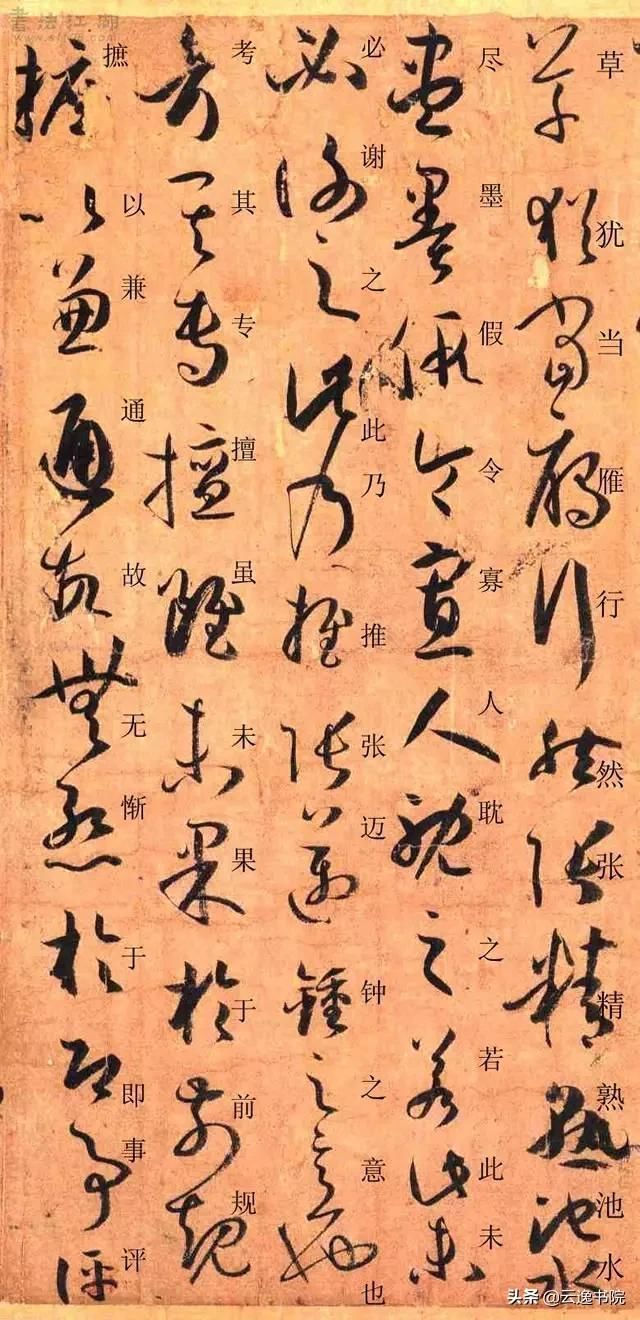 草犹当雁行然张精熟池水
尽墨假令寡人耽之若此未
必谢之此乃推张迈钟之意也
考其专擅虽未果于前规
摭以兼通故无惭于即事评
头条 @云逸书院